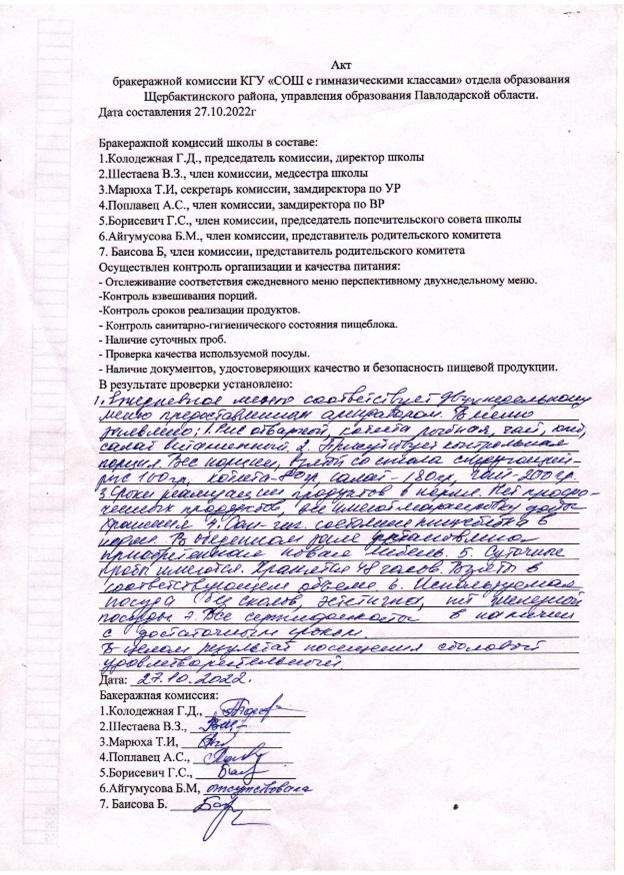 Акт
бракеражной комиссии КГУ «СОШ с гимназическими классами» отдела образования
Щербактинского района, управления образования Павлодарской области.
Дата составления 27.10.2022г
Бракеражной комиссий школы в составе:
1.Колодежная Г.Д., председатель комиссии, директор школы
2.Шестаева В.З., член комиссии, медсестра школы
3.Марюха Т.И, секретарь комиссии, замдиректора по УР
4.Поплавец А.С., член комиссии, замдиректора по ВР
5.Борисевич Г.С., член комиссии, председатель попечительского совета школы
6.Айгумусова Б.М., член комиссии, представитель родительского комитета
7. Баисова Б, член комиссии, представитель родительского комитета
Осуществлен контроль организации и качества питания:
- Отслеживание соответствия ежедневного меню перспективному двухнедельному меню.
-Контроль взвешивания порций.
-Контроль сроков реализации продуктов.
- Контроль санитарно-гигиенического состояния пищеблока.
- Наличие суточных проб.
- Проверка качества используемой посуды.
- Наличие документов, удостоверяющих качество и безопасность пищевой продукции.
В результате проверки установлено:
1. Ежедневное меню соответствует двухнедельному
меню предоставленном арендатором. В меню
заявлено: 1. Рис отварной, котлета рыбная, чай,
салат витаминный. 2. Присутствует контрольная
порция. Вес порции, взятой со стола следующий-
рис 100гр, котлета- 80гр, салат- гр, чай- 200 гр.
3. Сроки реализации продуктов в норме. Нет просро-
ченных продуктов, все имеют маркировку даты
хранения 4. Сан-гиг. состояние пищеблока в
норме. В обеденном зале установлена
приобретенная новая мебель. 5. Суточные
пробы имеются. Хранятся 48 часов. Взяты в
соответствующем объеме 6. Используемая
посуда без сколов, эстетична, нет
посуды 7. Все в наличии
с достаточным сроком.
В целом результат посещения столовой
удовлетворительный.
Дата: 27.10.2022.
Бакеражная комиссия:
1.Колодежная Г.Д.,
2.Шестаева В.З.,
3.Марюха Т.И,
4.Поплавец А.С.,
5.Борисевич Г.С.,
6.Айгумусова Б.М, отсутствовала
7. Баисова Б.